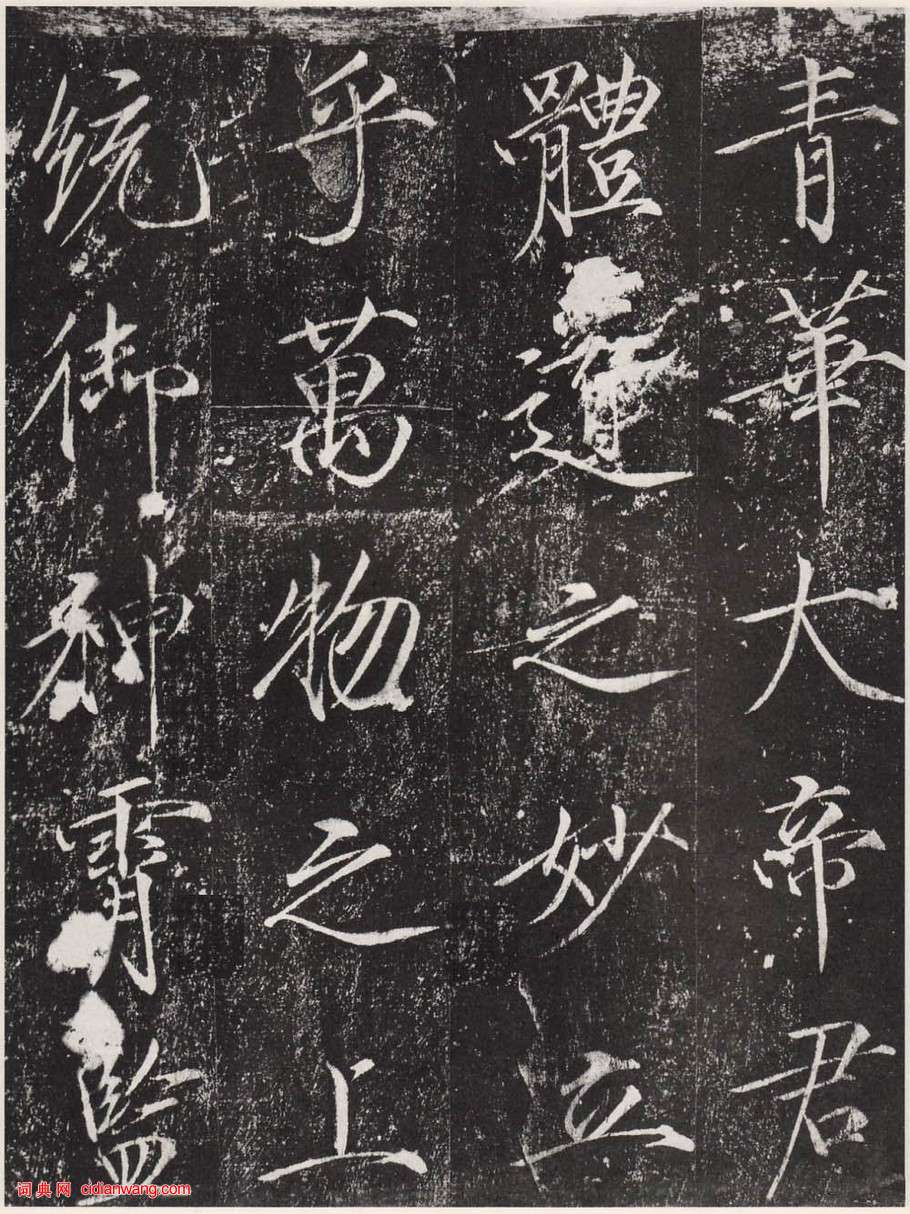 青華大帝君
體道之妙立
乎萬物之上
統御神霄監
词典网 cidianwang.com